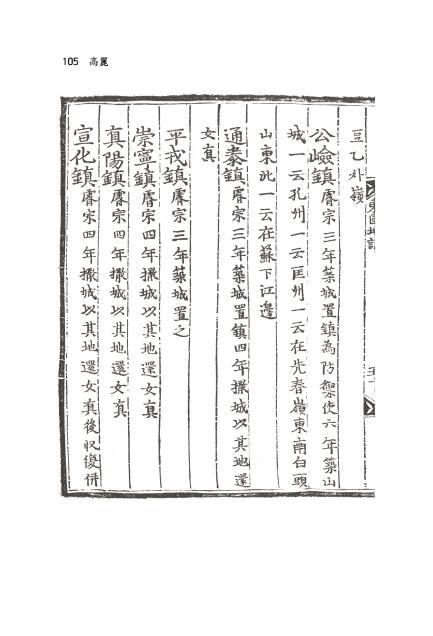 105 高麗
豆乙外嶺
公嶮鎮睿宗三年築城置鎮為防禦使六年築山
城一云孔州一云匡州一云在先春嶺東南白頭
山東北一云在蘇下江邊
通泰鎮睿宗三年築城置鎮四年撤城以其地還
女真
平戎鎮睿宗三年築城置之
崇寧鎮睿宗四年撤城以其地還女真
真陽鎮睿宗四年撤城以其地還女真
宣化鎮睿宗四年撤城以其地還女真後収復併